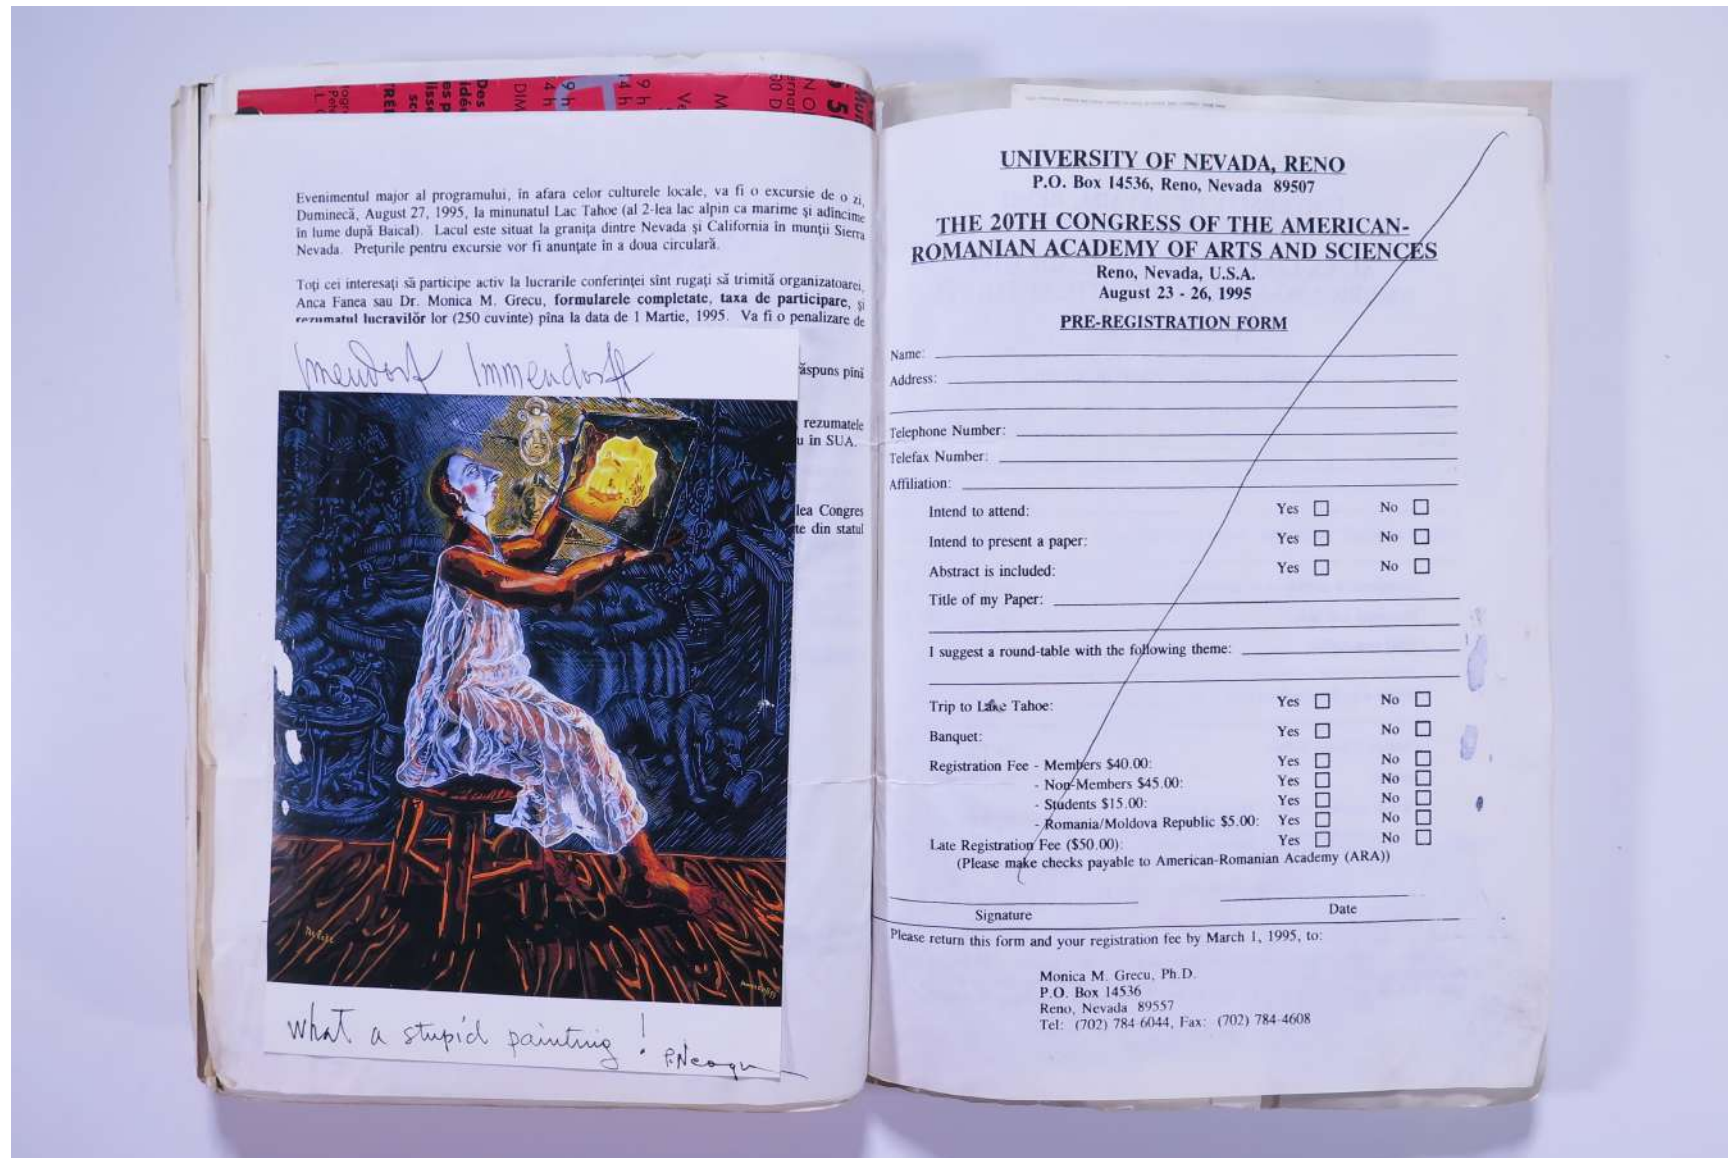 Evenimentul major al programului, în afara celor culturele locale, va fi o excursie de o zi,
Duminecă, August 27, 1995, la minunatul Lac Tahoe (al 2-lea lac alpin ca marime și adîncime
în lume după Baical). Lacul este situat la granița dintre Nevada și California în munții Sierra
Nevada. Prețurile pentru excursie vor fi anunțate în a doua circulară.
Toți cei interesați să participe activ la lucrarile conferinței sînt rugați să trimită organizatoarei,
Anca Fanea sau Dr. Monica M. Grecu, formularele completate, taxa de participare, și
rezumatul lucravilŏr lor (250 cuvinte) pîna la data de 1 Martie, 1995. Va fi o penalizare de
ăspuns pînă
rezumatele
u in SUA.
lea Congres
te din statul
Immendorff
what a stupid painting !
P.Neagu
UNIVERSITY OF NEVADA, RENO
P.O. Box 14536, Reno, Nevada 89507
THE 20TH CONGRESS OF THE AMERICAN-
ROMANIAN ACADEMY OF ARTS AND SCIENCES
Reno, Nevada, U.S.A.
August 23 - 26, 1995
PRE-REGISTRATION FORM
Name:
Address:
Telephone Number:
Telefax Number:
Affiliation:
Intend to attend: Yes No
Intend to present a paper: Yes No
Abstract is included: Yes No
Title of my Paper:
I suggest a round-table with the following theme:
Trip to Lake Tahoe: Yes No
Banquet: Yes No
Registration Fee - Members $40.00: Yes No
- Non-Members $45.00: Yes No
- Students $15.00: Yes No
- Romania/Moldova Republic $5.00: Yes No
Late Registration Fee ($50.00): Yes No
(Please make checks payable to American-Romanian Academy (ARA))
Signature Date
Please return this form and your registration fee by March 1, 1995, to:
Monica M. Grecu, Ph.D.
P.O. Box 14536
Reno, Nevada 89557
Tel: (702) 784-6044, Fax: (702) 784-4608